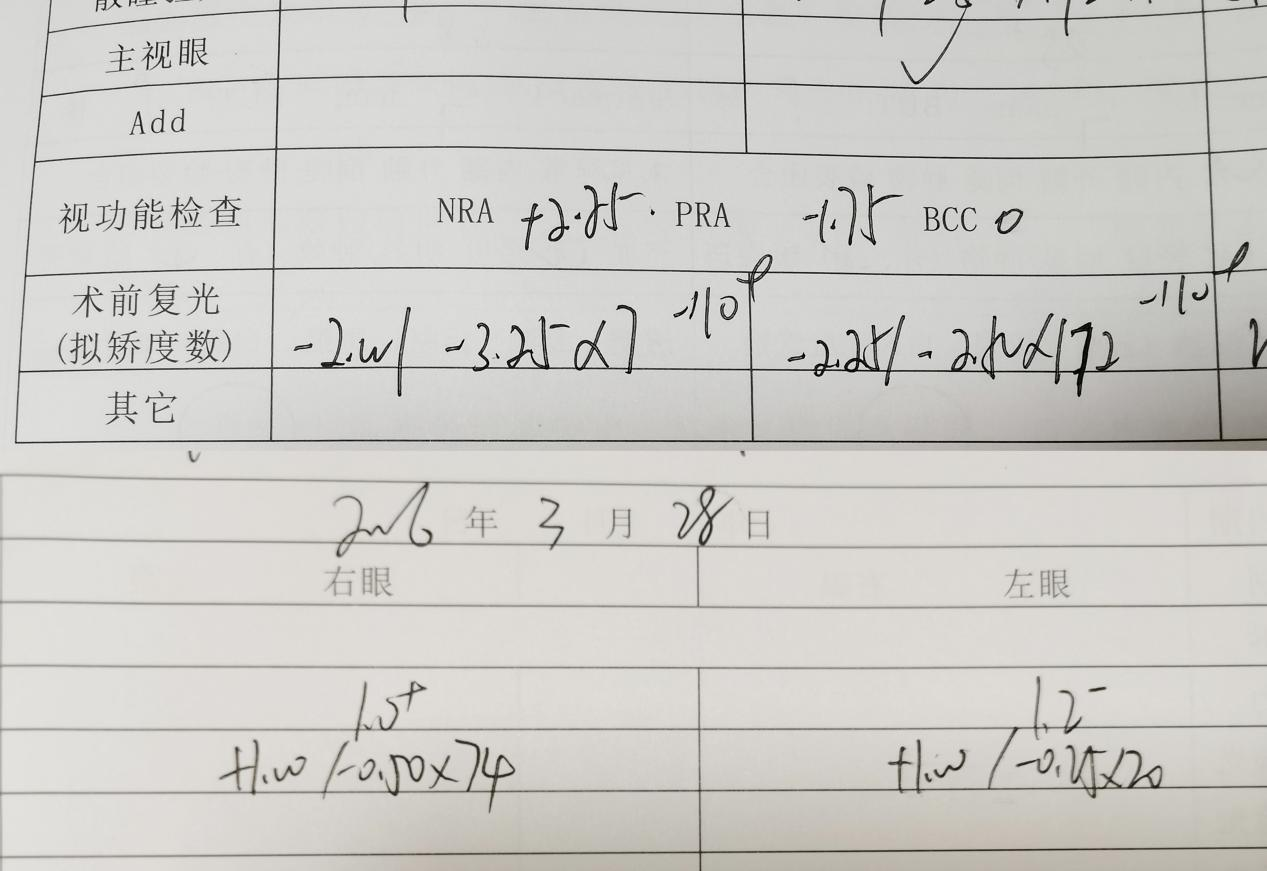 主视眼
Add
视功能检查 NRA +2.25 . PRA -1.75 BCC 0
术前复光
(拟矫度数) -2.00/-3.25×7 -110° -2.25/-2.50×172 -110°
其它
年 3 月 28 日
右眼 左眼
1.0⁺ 1.2⁻
+1.00/-0.50×74 +1.00/-0.25×20